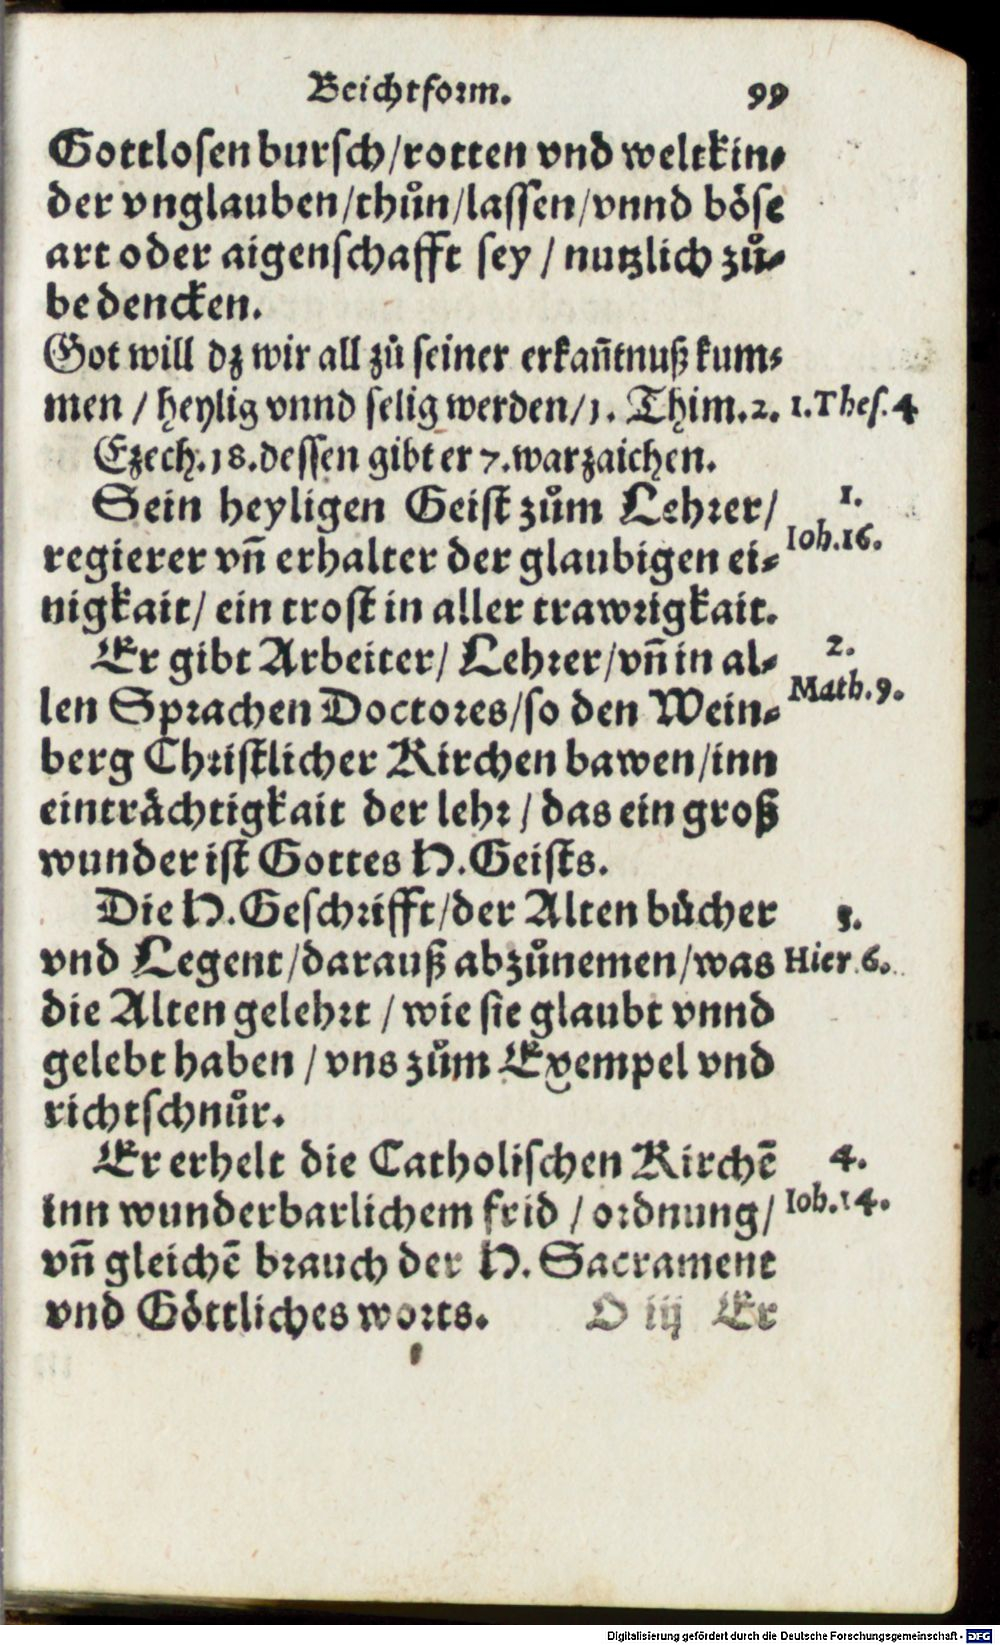 Beichtform. 99
Gottlosen bursch/rotten vnd weltkin⸗
der vnglauben/thůn/lassen/vnnd böse
art oder aigenschafft sey / nutzlich zů⸗
bedencken.
Got will dz wir all zů seiner erkañtnuß kum⸗
men / heylig vnnd selig werden/1. Thim.2. 1.Thes.4
Ezech.18.dessen gibt er 7.warzaichen.
Sein heyligen Geist zům Lehrer/ 1.
regierer vñ erhalter der glaubigen ei⸗ Ioh.16.
nigkait/ ein trost in aller trawrigkait.
Er gibt Arbeiter/ Lehrer/vñ in al⸗ 2.
len Sprachen Doctores/so den Wein⸗ Math.9.
berg Christlicher Kirchen bawen/inn
einträchtigkait der lehr / das ein groß
wunder ist Gottes H.Geists.
Die H.Geschrifft/der Alten bücher 3.
vnd Legent/darauß abzůnemen/was Hier.6.
die Alten gelehrt / wie sie glaubt vnnd
gelebt haben / vns zům Exempel vnd
richtschnůr.
Er erhelt die Catholischen Kirchē 4.
inn wunderbarlichem frid / ordnung/ Ioh.14.
vñ gleichē brauch der H. Sacrament
vnd Göttliches worts. O iij Er
Digitalisierung gefördert durch die Deutsche Forschungsgemeinschaft - DFG